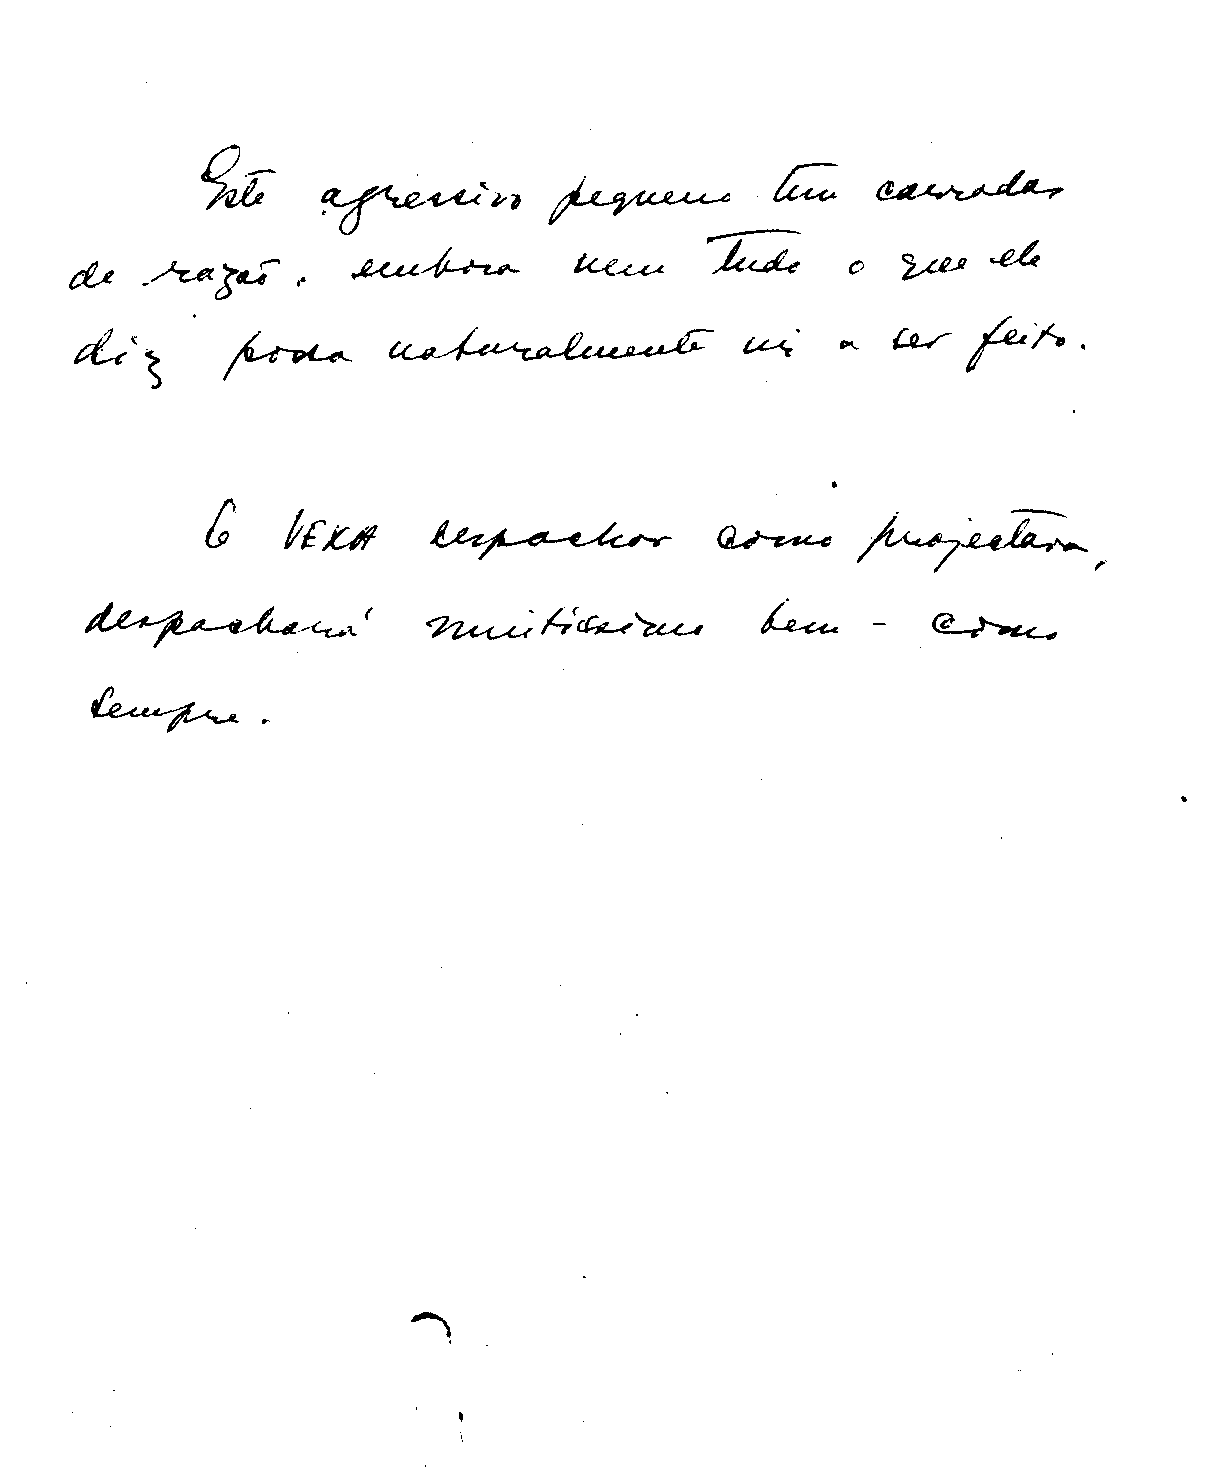 Este agressivo pequeno tem carradas
de razão, embora nem tudo o que ele
diz possa naturalmente vir a ser feito.
despachar como projectara,
despachará muitíssimo bem - como
sempre.